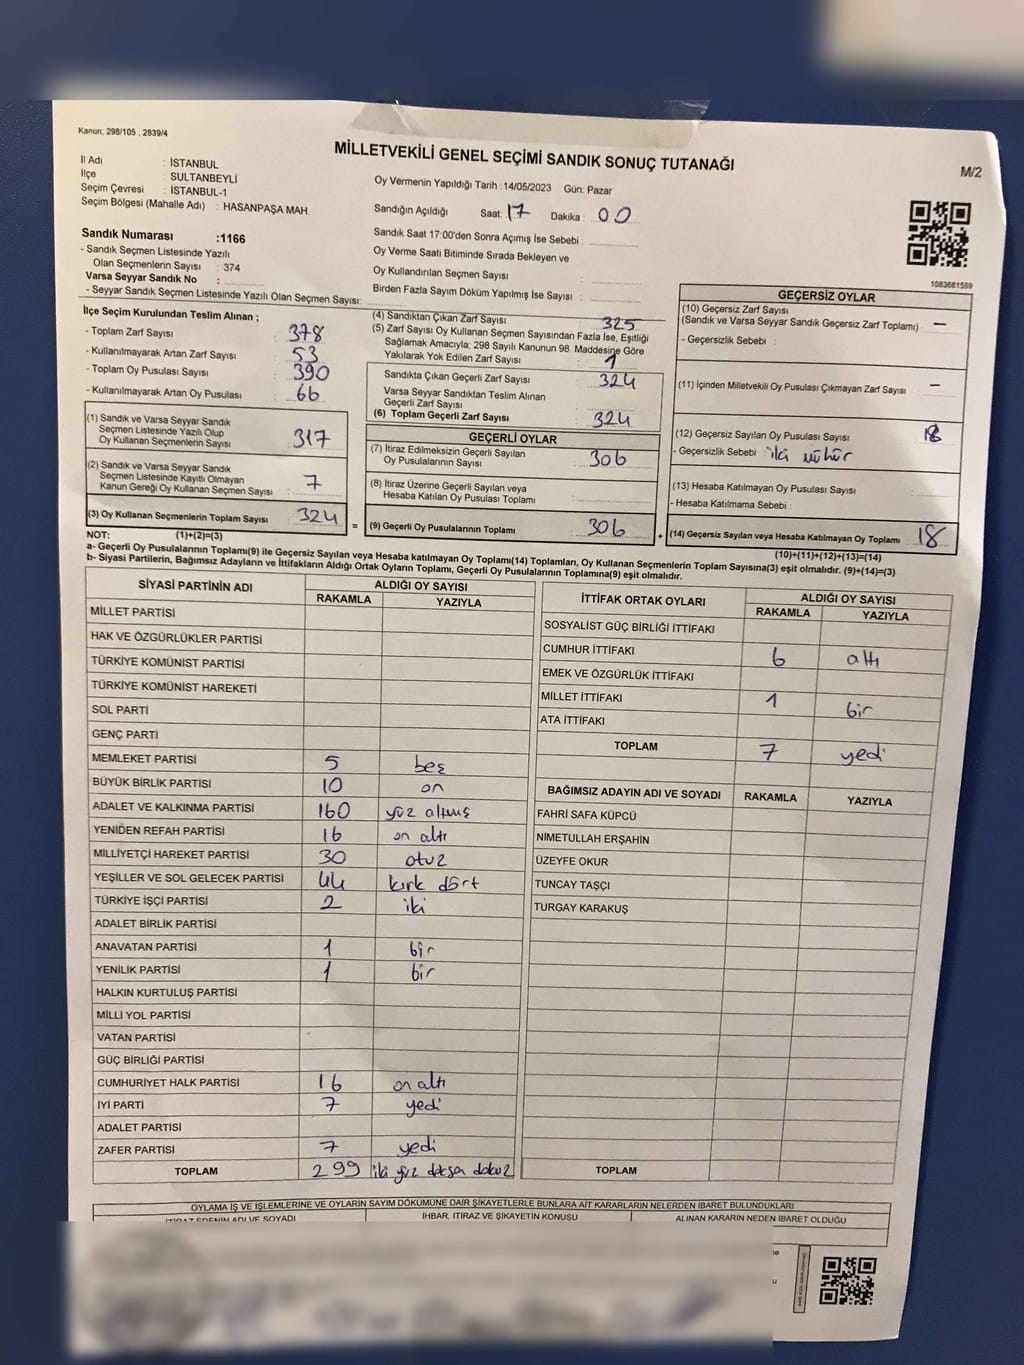 Kanun, 298/105 , 2839/4
MİLLETVEKİLİ GENEL SEÇİMİ SANDIK SONUÇ TUTANAĞI
M/2
İl Adı : İSTANBUL
İlçe : SULTANBEYLİ
Seçim Çevresi : İSTANBUL-1
Seçim Bölgesi (Mahalle Adı) : HASANPAŞA MAH.
Sandık Numarası :1166
- Sandık Seçmen Listesinde Yazılı
Olan Seçmenlerin Sayısı : 374
Varsa Seyyar Sandık No :
- Seyyar Sandık Seçmen Listesinde Yazılı Olan Seçmen Sayısı:
Oy Vermenin Yapıldığı Tarih : 14/05/2023 Gün: Pazar
Sandığın Açıldığı Saat: 17 Dakika : 00
Sandık Saat 17:00'den Sonra Açımış İse Sebebi :
Oy Verme Saati Bitiminde Sırada Bekleyen ve
Oy Kullandırılan Seçmen Sayısı :
Birden Fazla Sayım Döküm Yapılmış İse Sayısı :
1083681559
İlçe Seçim Kurulundan Teslim Alınan ;
- Toplam Zarf Sayısı : 378
- Kullanılmayarak Artan Zarf Sayısı : 53
- Toplam Oy Pusulası Sayısı : 390
- Kullanılmayarak Artan Oy Pusulası : 66
(1) Sandık ve Varsa Seyyar Sandık
Seçmen Listesinde Yazılı Olup
Oy Kullanan Seçmenlerin Sayısı : 317
(2) Sandık ve Varsa Seyyar Sandık
Seçmen Listesinde Kayıtlı Olmayan
Kanun Gereği Oy Kullanan Seçmen Sayısı : 7
(3) Oy Kullanan Seçmenlerin Toplam Sayısı : 324
(1)+(2)=(3)
(4) Sandıktan Çıkan Zarf Sayısı : 325
(5) Zarf Sayısı Oy Kullanan Seçmen Sayısından Fazla İse, Eşitliği
Sağlamak Amacıyla; 298 Sayılı Kanunun 98. Maddesine Göre
Yakılarak Yok Edilen Zarf Sayısı : 1
Sandıkta Çıkan Geçerli Zarf Sayısı : 324
Varsa Seyyar Sandıktan Teslim Alınan
Geçerli Zarf Sayısı :
(6) Toplam Geçerli Zarf Sayısı : 324
GEÇERLİ OYLAR
(7) İtiraz Edilmeksizin Geçerli Sayılan
Oy Pusulalarının Sayısı : 306
(8) İtiraz Üzerine Geçerli Sayılan veya
Hesaba Katılan Oy Pusulası Toplamı :
= (9) Geçerli Oy Pusulalarının Toplamı : 306 +
GEÇERSİZ OYLAR
(10) Geçersiz Zarf Sayısı
(Sandık ve Varsa Seyyar Sandık Geçersiz Zarf Toplamı) : —
- Geçersizlik Sebebi :
(11) İçinden Milletvekili Oy Pusulası Çıkmayan Zarf Sayısı : —
(12) Geçersiz Sayılan Oy Pusulası Sayısı : 18
- Geçersizlik Sebebi : iki mühür
(13) Hesaba Katılmayan Oy Pusulası Sayısı :
- Hesaba Katılmama Sebebi :
(14) Geçersiz Sayılan veya Hesaba Katılmayan Oy Toplamı : 18
(10)+(11)+(12)+(13)=(14)
NOT:
a- Geçerli Oy Pusulalarının Toplamı(9) ile Geçersiz Sayılan veya Hesaba katılmayan Oy Toplamı(14) Toplamları, Oy Kullanan Seçmenlerin Toplam Sayısına(3) eşit olmalıdır. (9)+(14)=(3)
b- Siyasi Partilerin, Bağımsız Adayların ve İttifakların Aldığı Ortak Oyların Toplamı, Geçerli Oy Pusulalarının Toplamına(9) eşit olmalıdır.
SİYASİ PARTİNİN ADI ALDIĞI OY SAYISI
RAKAMLA YAZIYLA
MİLLET PARTİSİ
HAK VE ÖZGÜRLÜKLER PARTİSİ
TÜRKİYE KOMÜNİST PARTİSİ
TÜRKİYE KOMÜNİST HAREKETİ
SOL PARTİ
GENÇ PARTİ
MEMLEKET PARTİSİ 5 beş
BÜYÜK BİRLİK PARTİSİ 10 on
ADALET VE KALKINMA PARTİSİ 160 yüz altmış
YENİDEN REFAH PARTİSİ 16 on altı
MİLLİYETÇİ HAREKET PARTİSİ 30 otuz
YEŞİLLER VE SOL GELECEK PARTİSİ 44 kırk dört
TÜRKİYE İŞÇİ PARTİSİ 2 iki
ADALET BİRLİK PARTİSİ
ANAVATAN PARTİSİ 1 bir
YENİLİK PARTİSİ 1 bir
HALKIN KURTULUŞ PARTİSİ
MİLLİ YOL PARTİSİ
VATAN PARTİSİ
GÜÇ BİRLİĞİ PARTİSİ
CUMHURİYET HALK PARTİSİ 16 on altı
İYİ PARTİ 7 yedi
ADALET PARTİSİ
ZAFER PARTİSİ 7 yedi
TOPLAM 299 iki yüz doksan dokuz
İTTİFAK ORTAK OYLARI ALDIĞI OY SAYISI
RAKAMLA YAZIYLA
SOSYALİST GÜÇ BİRLİĞİ İTTİFAKI
CUMHUR İTTİFAKI 6 altı
EMEK VE ÖZGÜRLÜK İTTİFAKI
MİLLET İTTİFAKI 1 bir
ATA İTTİFAKI
TOPLAM 7 yedi
BAĞIMSIZ ADAYIN ADI VE SOYADI RAKAMLA YAZIYLA
FAHRİ SAFA KÜPCÜ
NİMETULLAH ERŞAHİN
ÜZEYFE OKUR
TUNCAY TAŞÇI
TURGAY KARAKUŞ
TOPLAM
OYLAMA İŞ VE İŞLEMLERİNE VE OYLARIN SAYIM DÖKÜMÜNE DAİR ŞİKAYETLERLE BUNLARA AİT KARARLARIN NELERDEN İBARET BULUNDUKLARI
İTİRAZ EDENİN ADI VE SOYADI İHBAR, İTİRAZ VE ŞİKAYETİN KONUSU ALINAN KARARIN NEDEN İBARET OLDUĞU